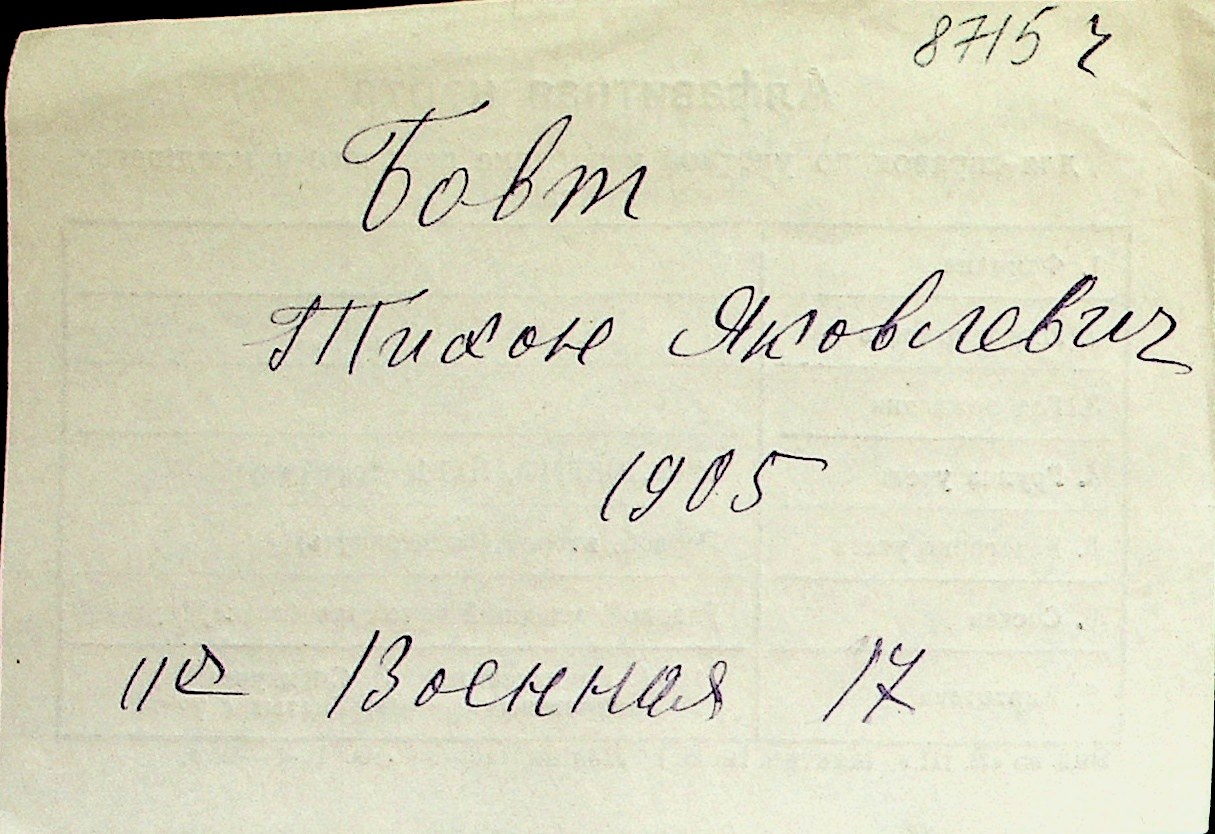 8715 ч
Бовт
Тихон Яковлевич
1905
11а Военная 17